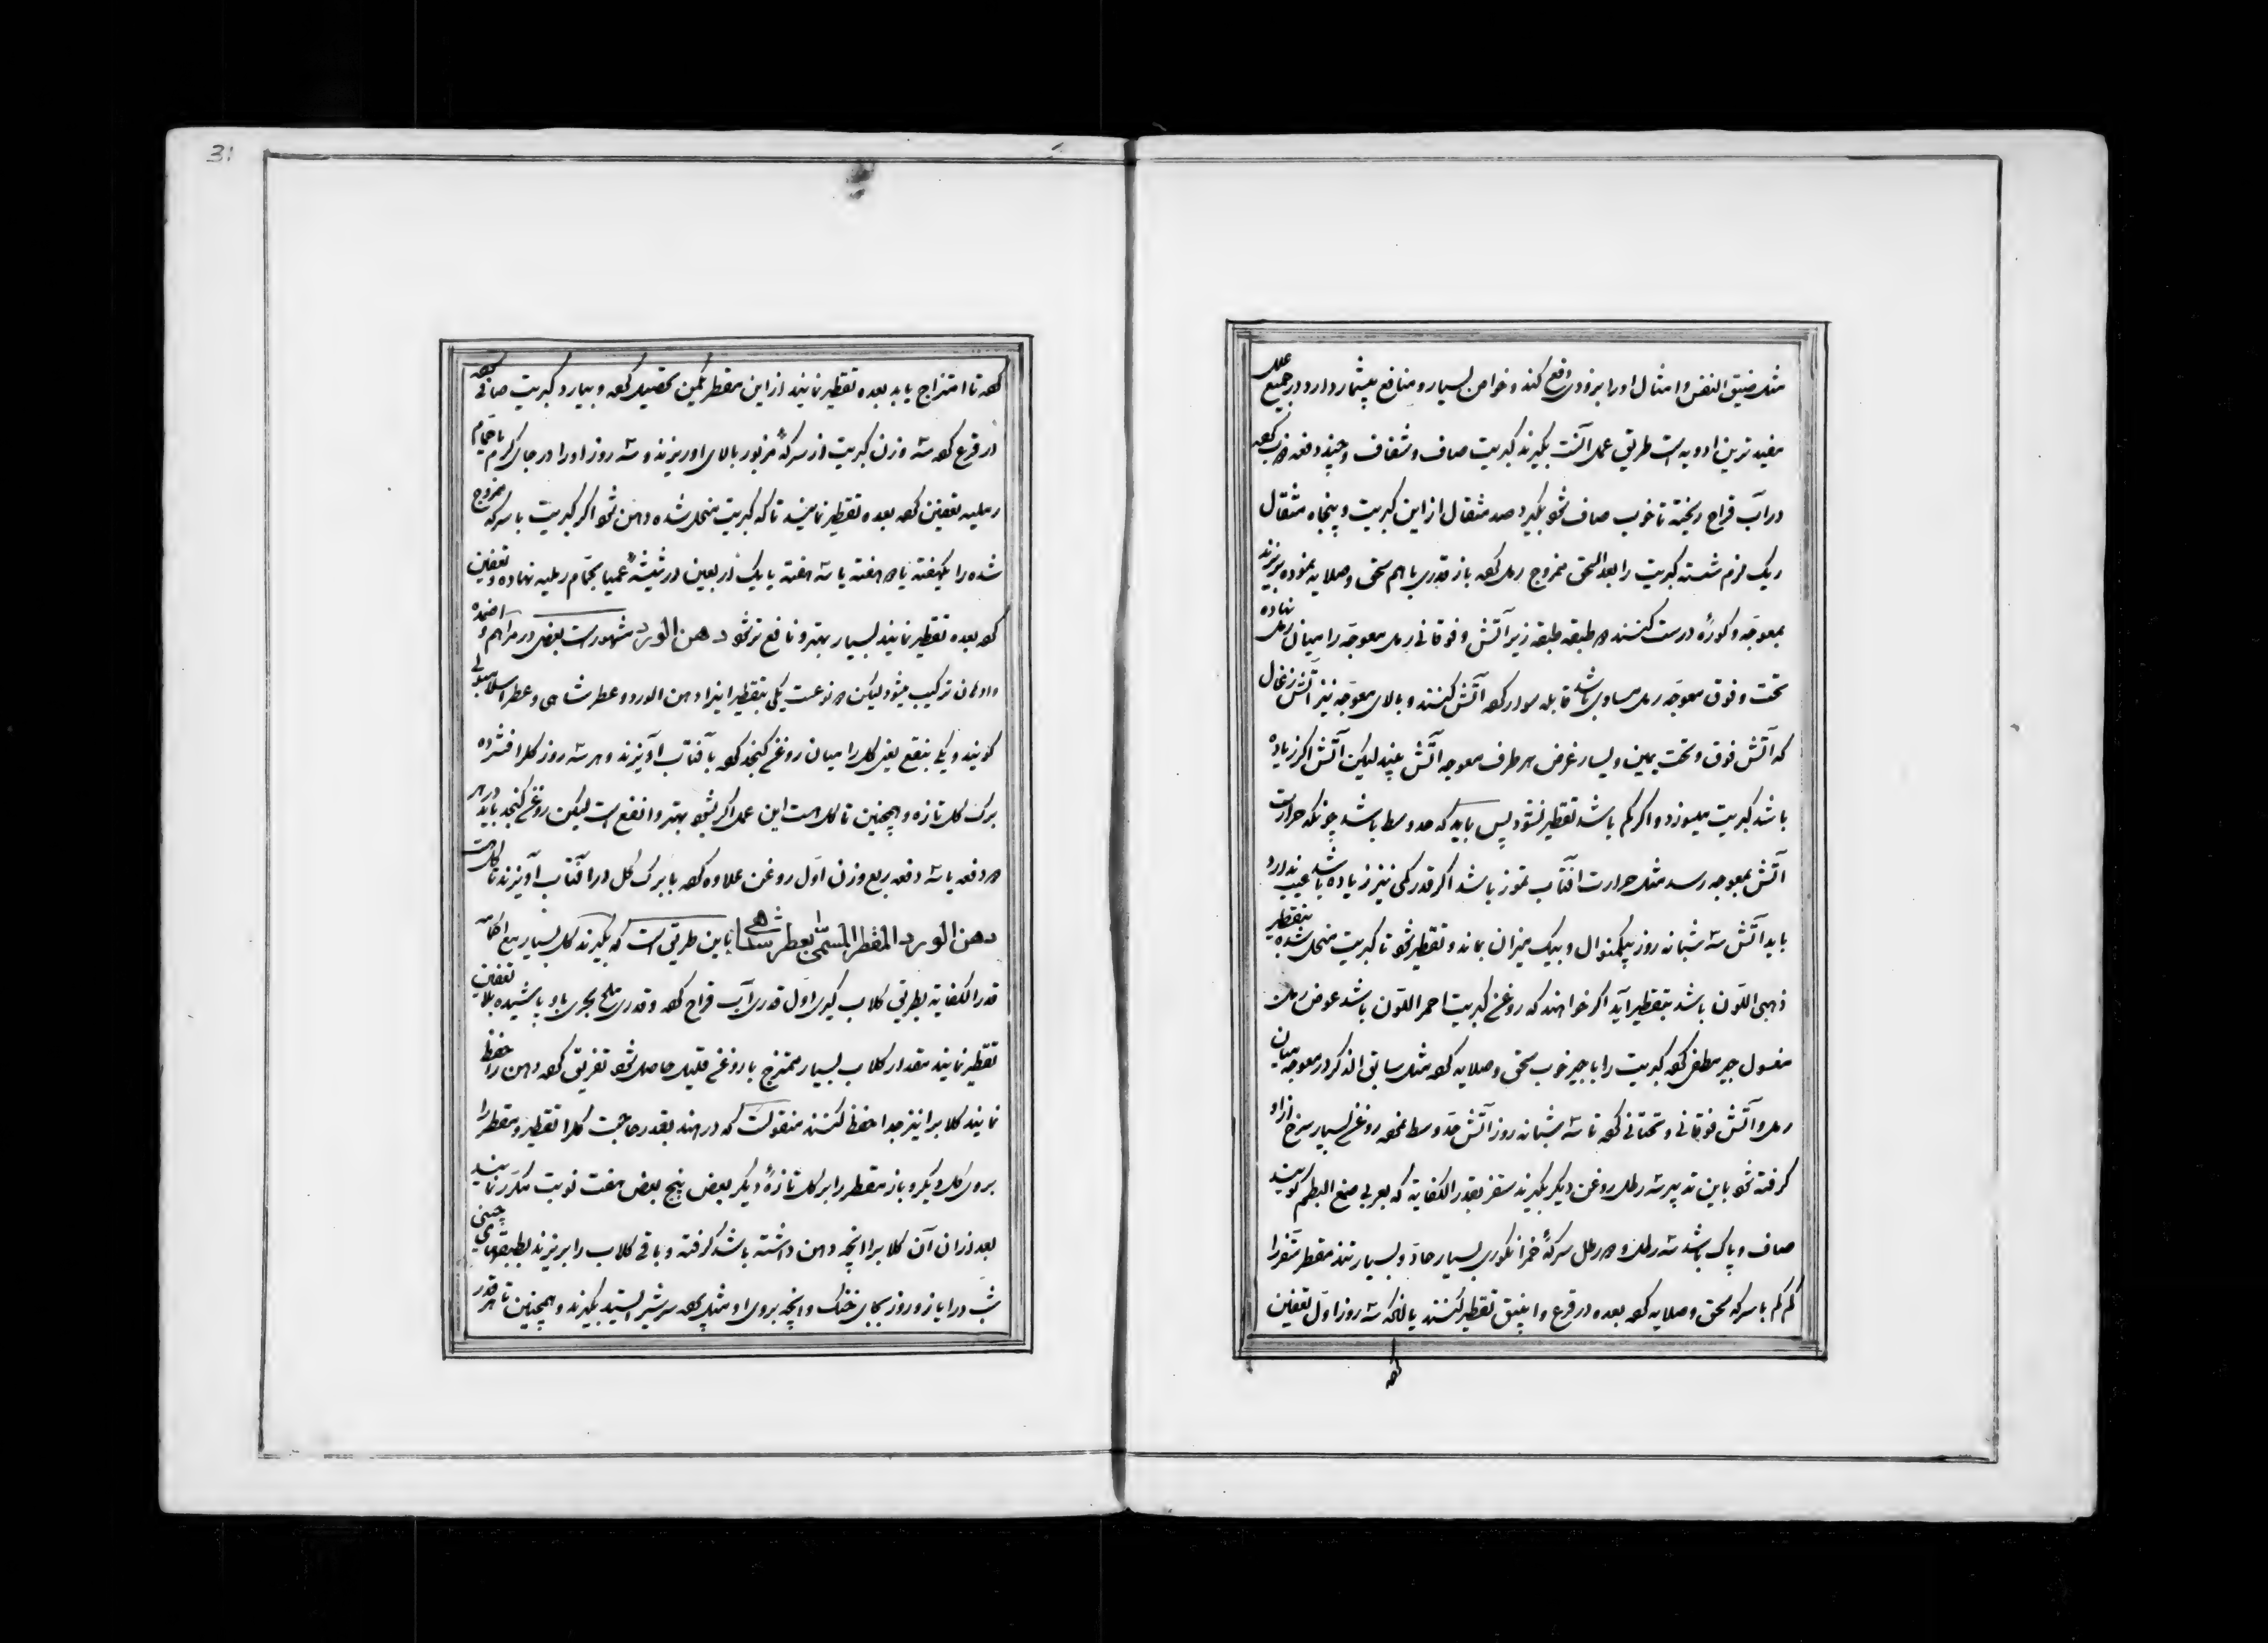 مثل ضیق النفس و امثال او را بزودی دفع کند و خواص بسیار و منافع بیشمار دارد در جمیع علل
مفید ترین ادویه است طریق عمل آنست بگیرند کبریت صاف و شفاف و چند دفعه ذوب کرده
در آب قراح ریخته تا خوب صاف شود بگیرد صد مثقال از این کبریت و پنجاه مثقال
ریک نرم شسته کبریت را بعد السحق ممزوج رمل کرده باز قدری باهم سحق و صلایه نموده بریزند
بمعوجه و کورۀ درست کنند دو طبقه طبقه زیر آتش و فوقانی رمل معوجه را میان رمل نهاده
تحت و فوق معوجه رمل مساوی باشد قابله سوار کرده آتش کنند و بالای معوجه نیز آتش زغال
که آتش فوق و تحت یمین و یسار غرض هر طرف معوجه آتش بیند لیکن آتش اگر زیاده
باشد کبریت میسوزد و اگر کم باشد تقطیر نشود پس باید که حد وسط باشد چونکه حرارت
آتش بمعوجه رسد مثل حرارت آفتاب تموز باشد اگر قدر کمی نیز زیاده باشد عیب ندارد
باید آتش سه شبانه روز بیکمنوال و بیک میزان بماند و تقطیر شود تا کبریت منحل شده بتقطیر
ذهبی اللون باشد بتقطیر آید اگر خواهند که روغن کبریت احمر اللون باشد عوض رمل
مغسول جیر مطفی کرده کبریت را با جیر خوب سحق و صلایه کرده مثل سابق الذکر در معوجه میان
رمل و آتش فوقانی و تحتانی کرده تا سه شبانه روز آتش حد وسط نموده روغن بسیار سرخ از او
گرفته شود باین تدبیر سه رطل روغن دیگر بگیرند سقز بقدر الکفایه که بعربی صمغ البطم گویند
صاف و پاک باشد سه رطل و دو رطل سرکۀ خمر انگوری بسیار حاد و بسیار تند مقطر سقز را
کم کم با سرکه سحق و صلایه کرده بعده در قرع و انبیق تقطیر کنند یا آنکه سه روز اول تعفین
کرده
31
کرده تا امتزاج یابد بعده تقطیر نمایند از این مقطر یکمن تحصیل کرده و بیارد کبریت صافی کرده
در قرع کرده سه وزن کبریت از سرکۀ مزبور بالای او ریزند و سه روز او را در جای گرم یا حمام
رملیه تعفین کرده بعده تقطیر نمایند تا که کبریت منحل شده دهن شود اگر کبریت با سرکه ممزوج
شده را یکهفته یا دو هفته یا سه هفته یا یک اربعین در شیشۀ عمیا بحمام رملیه نهاده و تعفین
کرده بعده تقطیر نمایند بسیار بهتر و نافع تر شود دهن الورد مشهور است بعضی در مراهم و اضمده
و ادهان ترکیب میشود لیکن دو نوعست یکی بتقطیر اینرا دهن الورد و عطر شاهی و عطر اسلامبولی
گویند و یکی بنقع یعنی گل را میان روغن کنجد کرده بآفتاب آویزند و هر سه روز گلرا فشرده
برک گل تازه و همچنین تا گل هست این عمل اگر بشود بهتر و انفع است لیکن روغن کنجد باید در هر
دو دفعه یا سه دفعه ربع وزن اول روغن علاوه کرده با برک گل در آفتاب آویزند تا گل هست
دهن الورد المقطر المسمی بعطر شاهی باین طریق است که بگیرند گل بسیار مع اقماعه
قدر الکفایه بطریق گلاب گیری اول قدری آب قراح کرده و قدری ملح بحری باو پاشیده بلا تعفین
تقطیر نمایند مقدار گلاب بسیار ممتزج با روغن قلیل حاصل شود تفریق کرده دهن را حفظ
نمایند گلابرا نیز جدا حفظ کنند منقولست که در هند بقدر حاجت گلرا تقطیر و مقطر را
بروی گل دیگر و باز مقطر را بر گل تازۀ دیگر بعضی پنج بعضی هفت نوبت مکرر نمایند
بعد از ان آن گلابرا آنچه دهن داشته باشد گرفته و باقی گلاب را بریزند بطبقهای چینی
شب در ایاز و روز بجای خنک و آنچه بروی او مثل سرشیر ایستد بگیرند و همچنین تا هر قدر